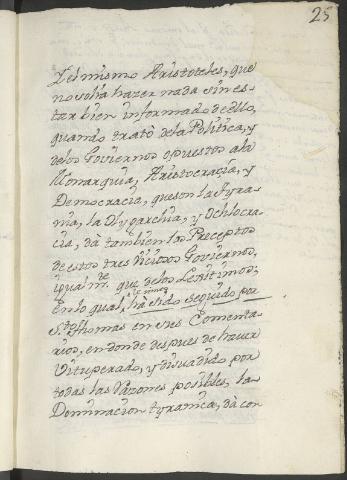 25
Y el mismo Aristoteles, que
no solia hazer nada sin es-
tar bien informado de ello,
quando trató de la Politica, y
de los Goviernos opuestos a la
Monarquia, Aristocracia, y
Democracia, que son la Tyra-
nia, la Olygarchia, y Ochlocra-
cia, dà tambien los Preceptos
de estos tres Viciosos Goviernos,
igualmte. que de los Lexitimos;
En lo qual, ha sido seguido por
Sto. Thomas en sus Comenta-
rios, en donde despues de haver
Vituperado, y disuadido por
todas las Razones posibles, la
Dominacion tyranica, dà con